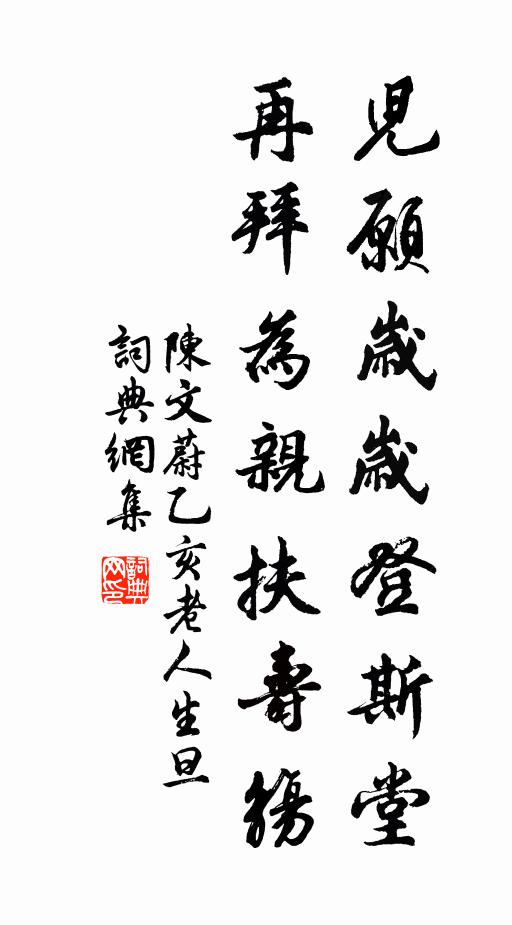 児願歳歳登斯堂
再拜為親扶壽觴
陳文蔚乙亥老人生旦
詞典網集
詞典网印